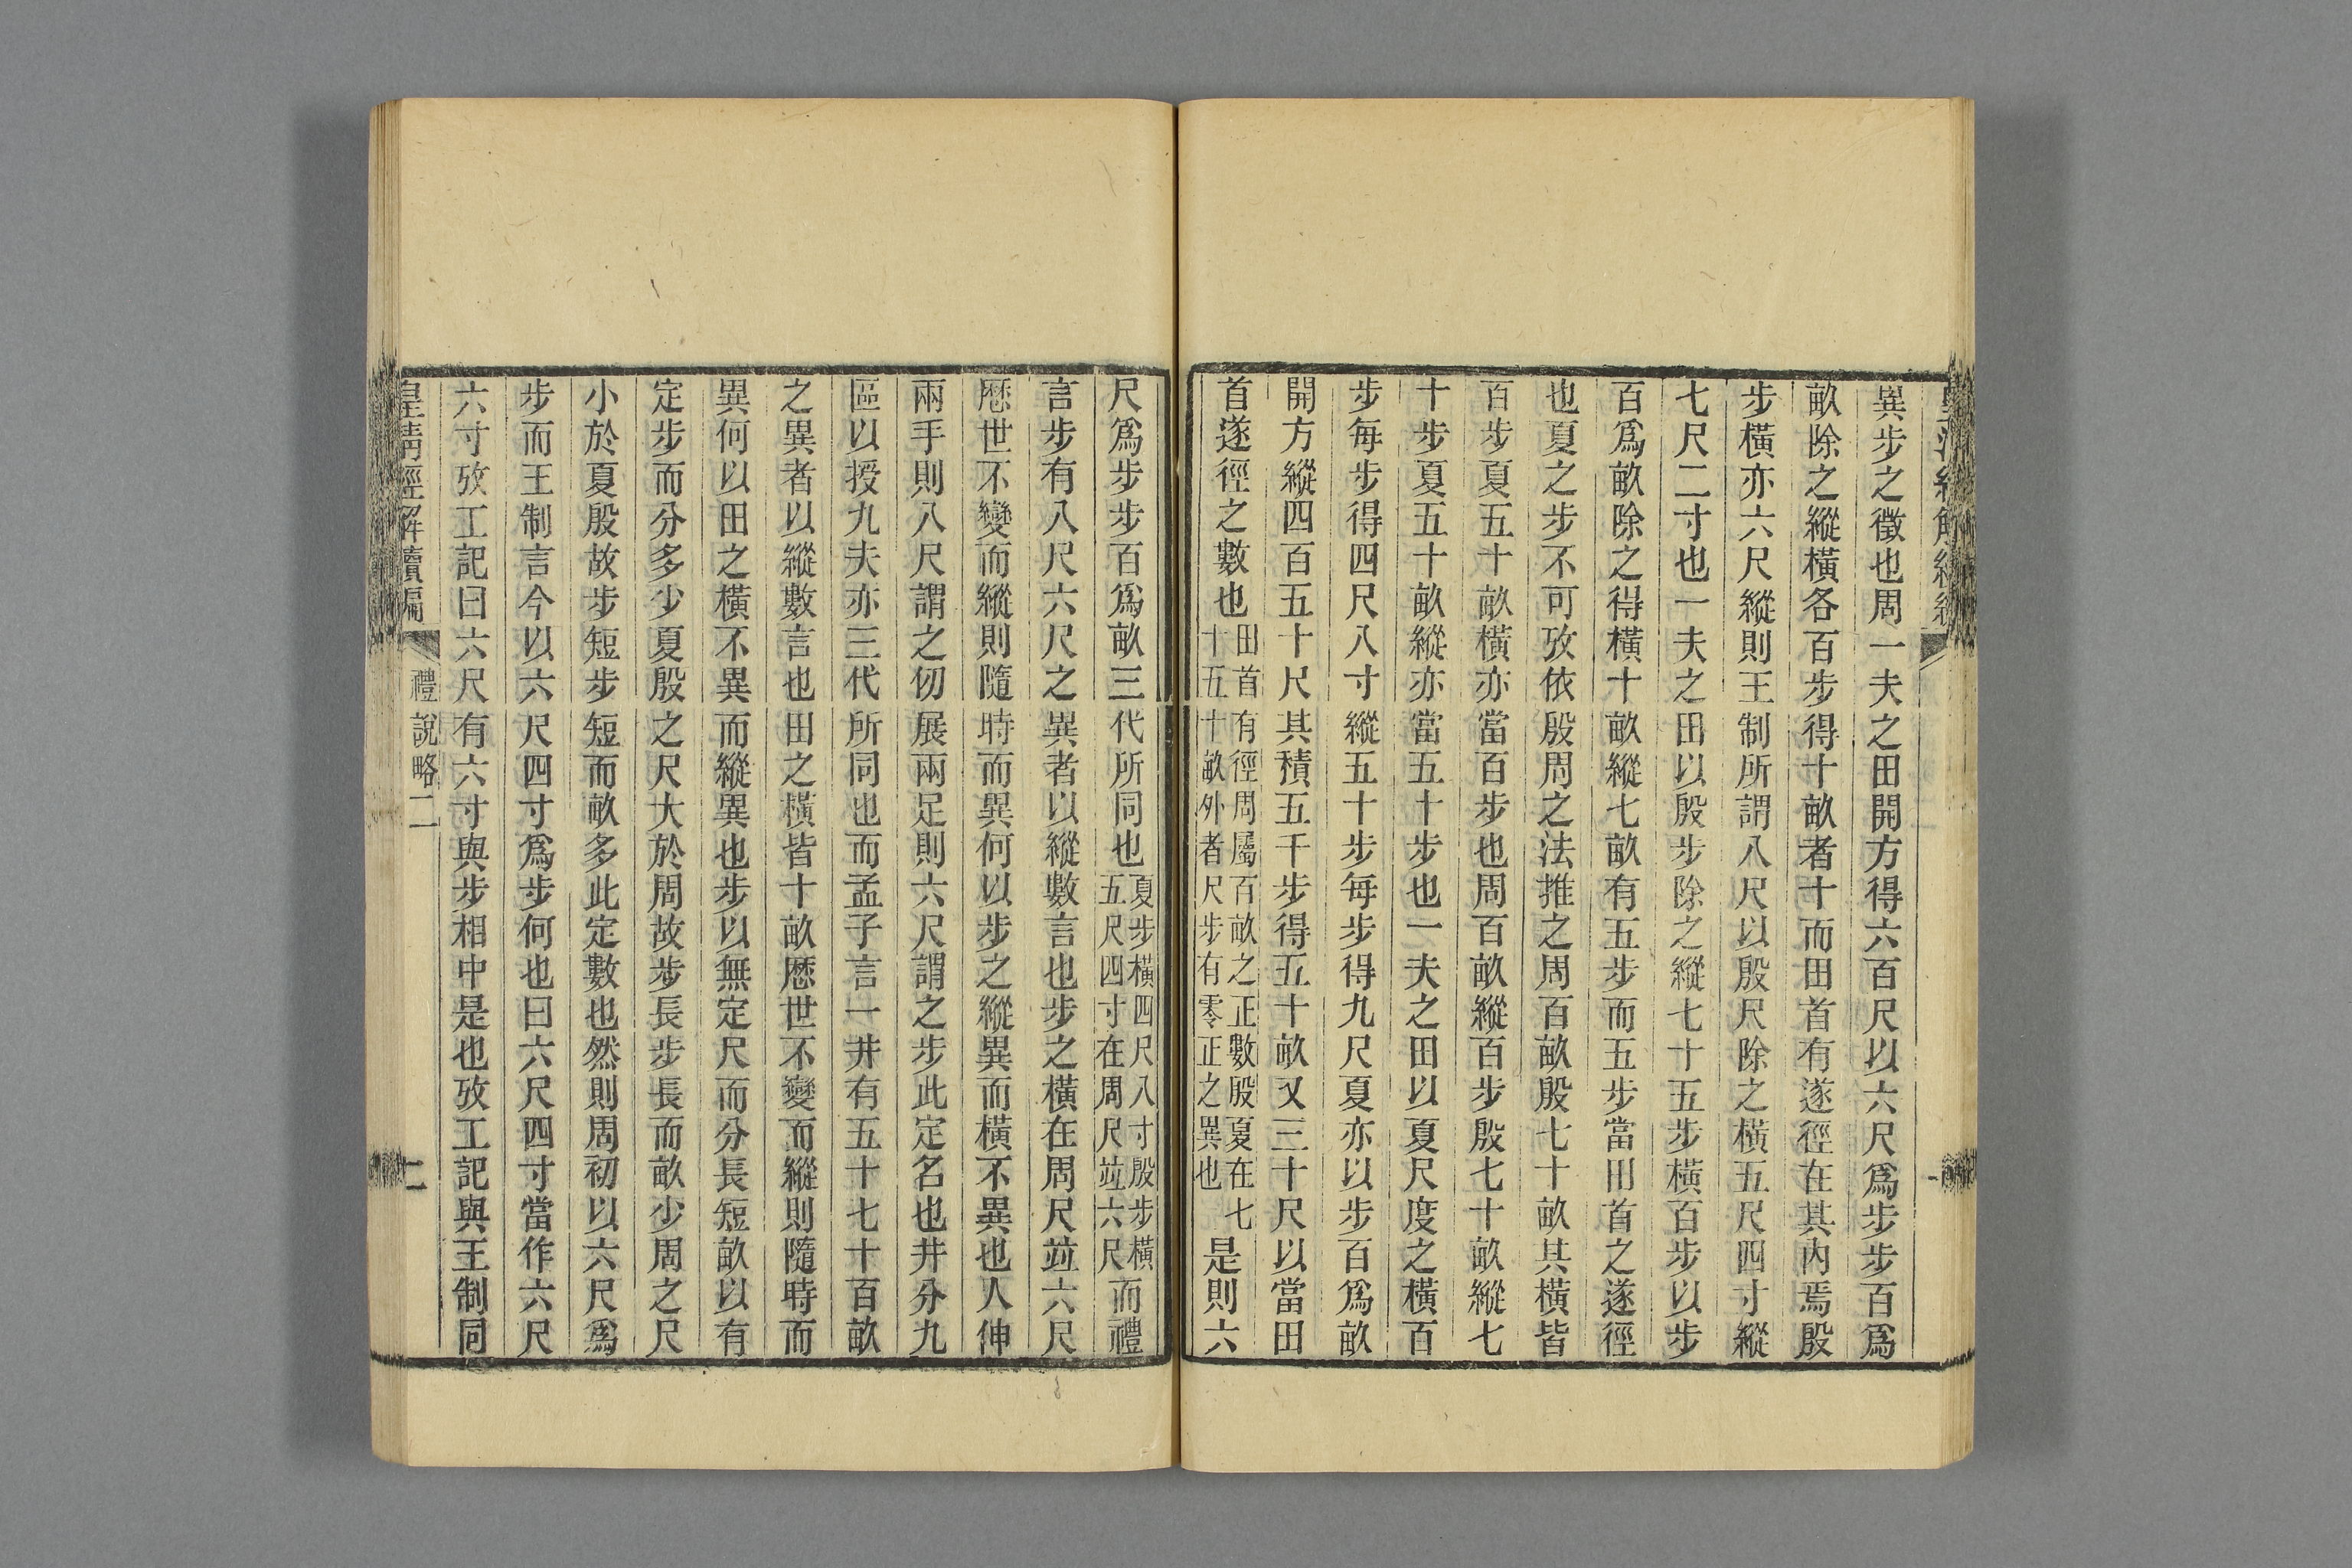 異步之徵也周一夫之田開方得六百尺以六尺爲步步百爲
畝除之縱橫各百步得十畝者十而田首有遂徑在其內焉殷
步橫亦六尺縱則王制所謂八尺以殷尺除之橫五尺四寸縱
七尺二寸也一夫之田以殷步除之縱七十五步橫百步以步
百爲畝除之得橫十畝縱七畝有五步而五步當田首之遂徑
也夏之步不可攷依殷周之法推之周百畝殷七十畝其橫皆
百步夏五十畝橫亦當百步也周百畝縱百步殷七十畝縱七
十步夏五十畝縱亦當五十步也一夫之田以夏尺度之橫百
步每步得四尺八寸縱五十步每步得九尺夏亦以步百爲畝
開方縱四百五十尺其積五千步得五十畝又三十尺以當田
首遂徑之數也田首有徑周屬百畝之正數殷夏在七十五十畝外者尺步有零正之異也是則六
尺爲步步百爲畝三代所同也夏步橫四尺八寸殷步橫五尺四寸在周尺竝六尺而禮
言步有八尺六尺之異者以縱數言也步之橫在周尺竝六尺
歷世不變而縱則隨時而異何以步之縱異而橫不異也人伸
兩手則八尺謂之仞展兩足則六尺謂之步此定名也井分九
區以授九夫亦三代所同也而孟子言一井有五十七十百畝
之異者以縱數言也田之橫皆十畝歷世不變而縱則隨時而
異何以田之橫不異而縱異也步以無定尺而分長短畝以有
定步而分多少夏殷之尺大於周故步長步長而畝少周之尺
小於夏殷故步短步短而畝多此定數也然則周初以六尺爲
步而王制言今以六尺四寸爲步何也曰六尺四寸當作六尺
六寸攷工記曰六尺有六寸與步相中是也攷工記與王制同
皇清經解續編 禮說略二 七